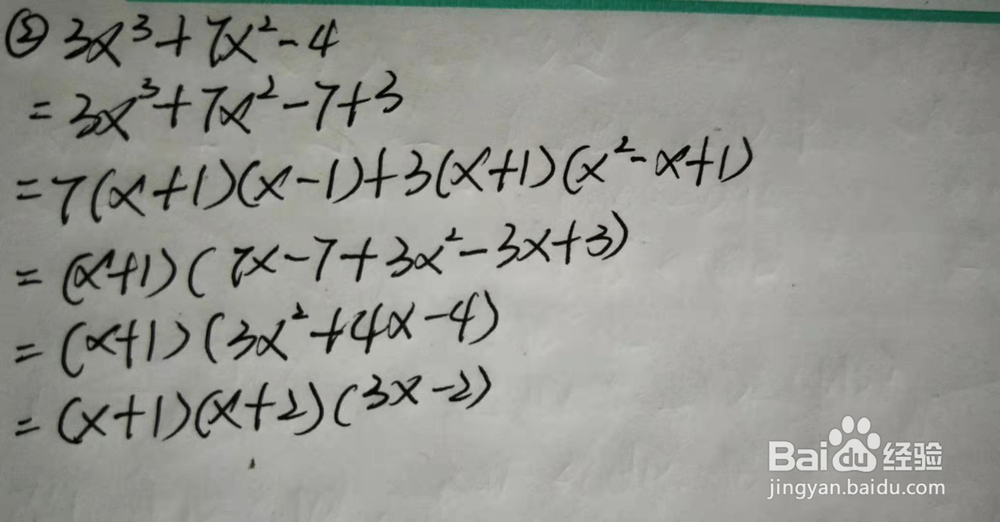 ② 3x³+7x²-4
=3x³+7x²-7+3
=7(x+1)(x-1)+3(x+1)(x²-x+1)
=(x+1)(7x-7+3x²-3x+3)
=(x+1)(3x²+4x-4)
=(x+1)(x+2)(3x-2)
Baidu经验
jingyan.baidu.com